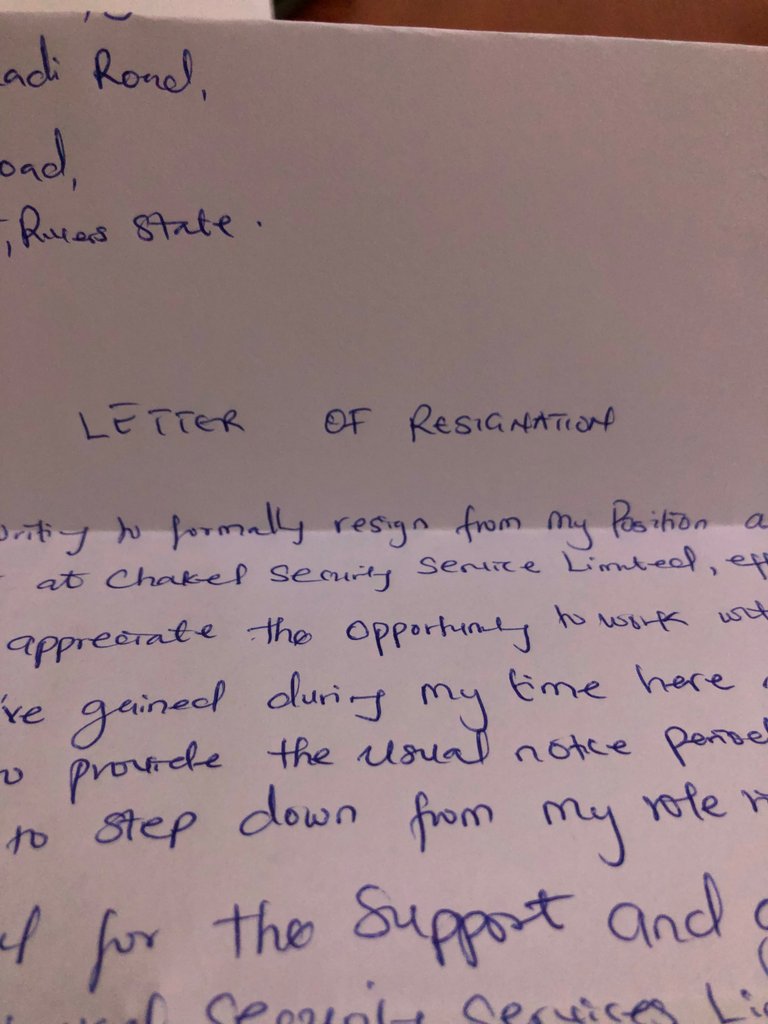 adi Road,
oad,
, Rivers State.
LETTER OF RESIGNATION
to formally resign from my Position a
at Chakel Security Service Limited, eff
appreciate the opportunity to work wit
've gained during my time here
to provide the usual notice period
to step down from my role
for the Support and
Security Services Li